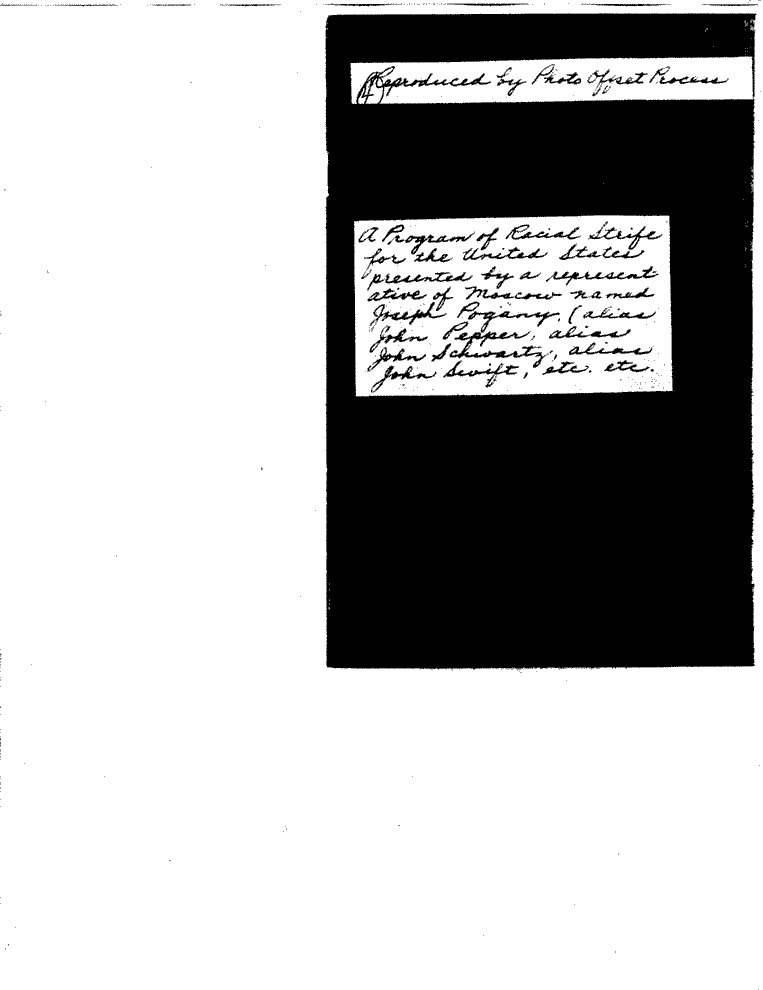 Reproduced by Photo Offset Process
A Program of Racial Strife
for the United States
presented by a represent
ative of Moscow named
Joseph Pogany, (alias
John Pepper, alias
John Schwartz, alias
John Swift, etc. etc.